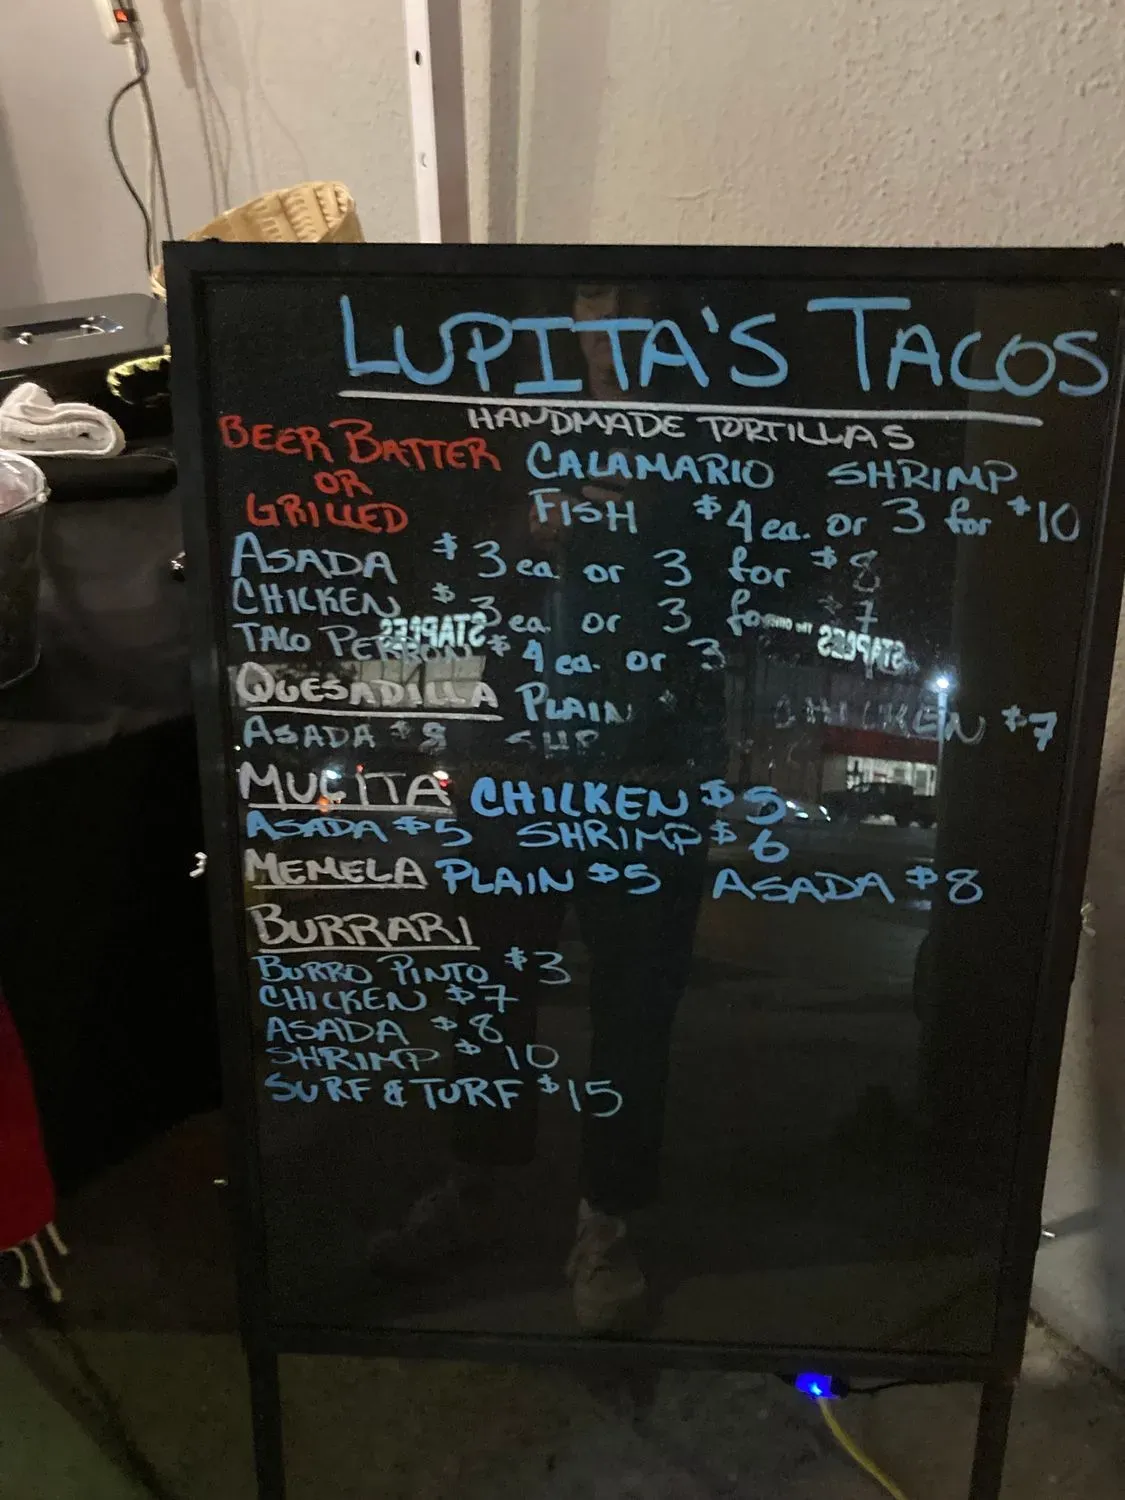 LUPITA'S TACOS
HANDMADE TORTILLAS
BEER BATTER
OR
GRILLED
CALAMARIO SHRIMP
FISH $4 ea. or 3 for $10
ASADA $3 ea or 3 for $8
CHICKEN $3 ea or 3 for $7
TACO $4 ea. or 3
QUESADILLA PLAIN CHICKEN $7
ASADA $8
MULITA CHICKEN $5
ASADA $5 SHRIMP $6
MEMELA PLAIN $5 ASADA $8
BURRARI
BURRO PINTO $3
CHICKEN $7
ASADA $8
SHRIMP $10
SURF & TURF $15
STAPLES
STAPLES